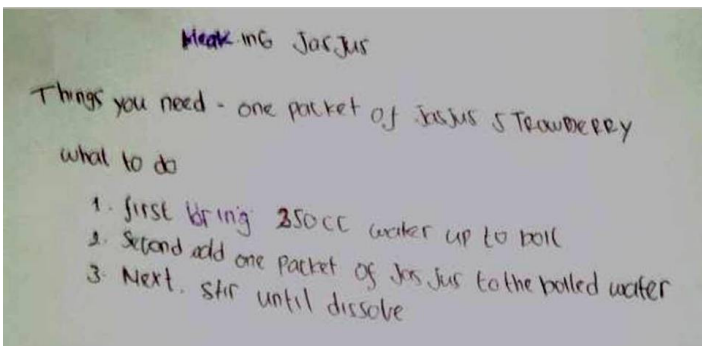 Meaking JasJus
Things you need - one packet of JasJus STRawBeRRY
what to do
1. first bring 350cc water up to boil
2. Second add one packet of Jas Jus to the boiled water
3. Next. stir until dissolve